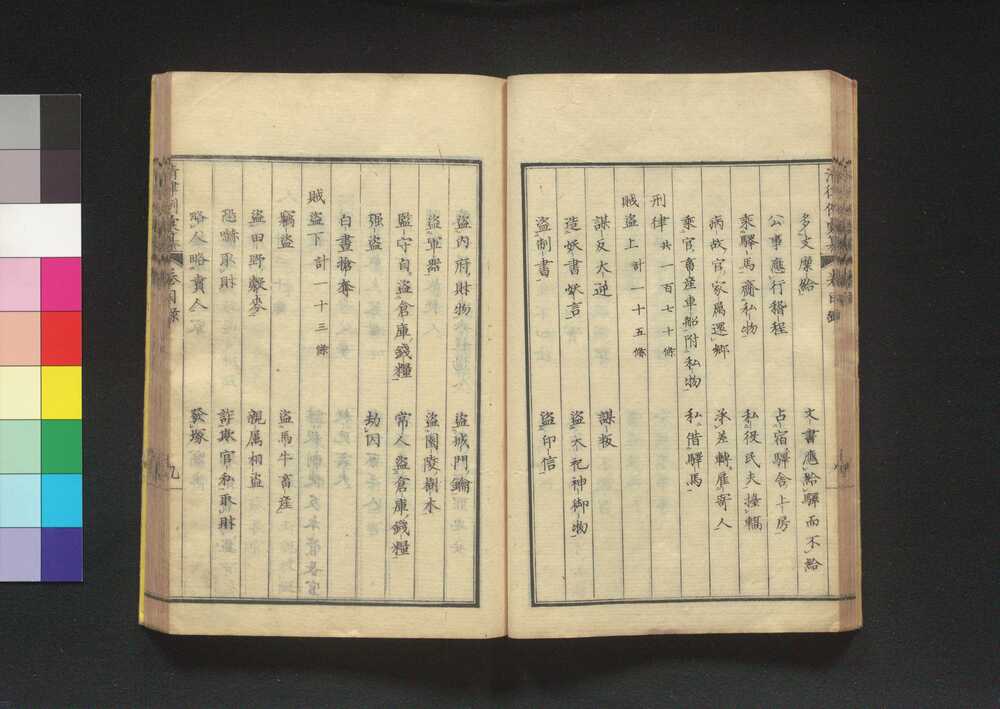 多支廩給　文書應給驛而不給
公事應行稽程　占宿驛舍上房
乘驛馬齎私物　私役民夫擡轎
病故官家屬還鄉　承差轉雇寄人
乘官畜産車船附私物　私借驛馬
刑律 共一百七十條
賊盜上 計一十五條
謀反大逆　謀叛
造妖書妖言　盜大祀神御物
盜制書　盜印信
盜內府財物　盜城門鑰
盜軍器　盜園陵樹木
監守自盜倉庫錢糧　常人盜倉庫錢糧
强盜　劫囚
白晝搶奪
賊盜下 計一十三條
竊盜　盜馬牛畜産
盜田野穀麥　親屬相盜
恐嚇取財　詐欺官私取財
略人略賣人　發塚
卷目錄
九